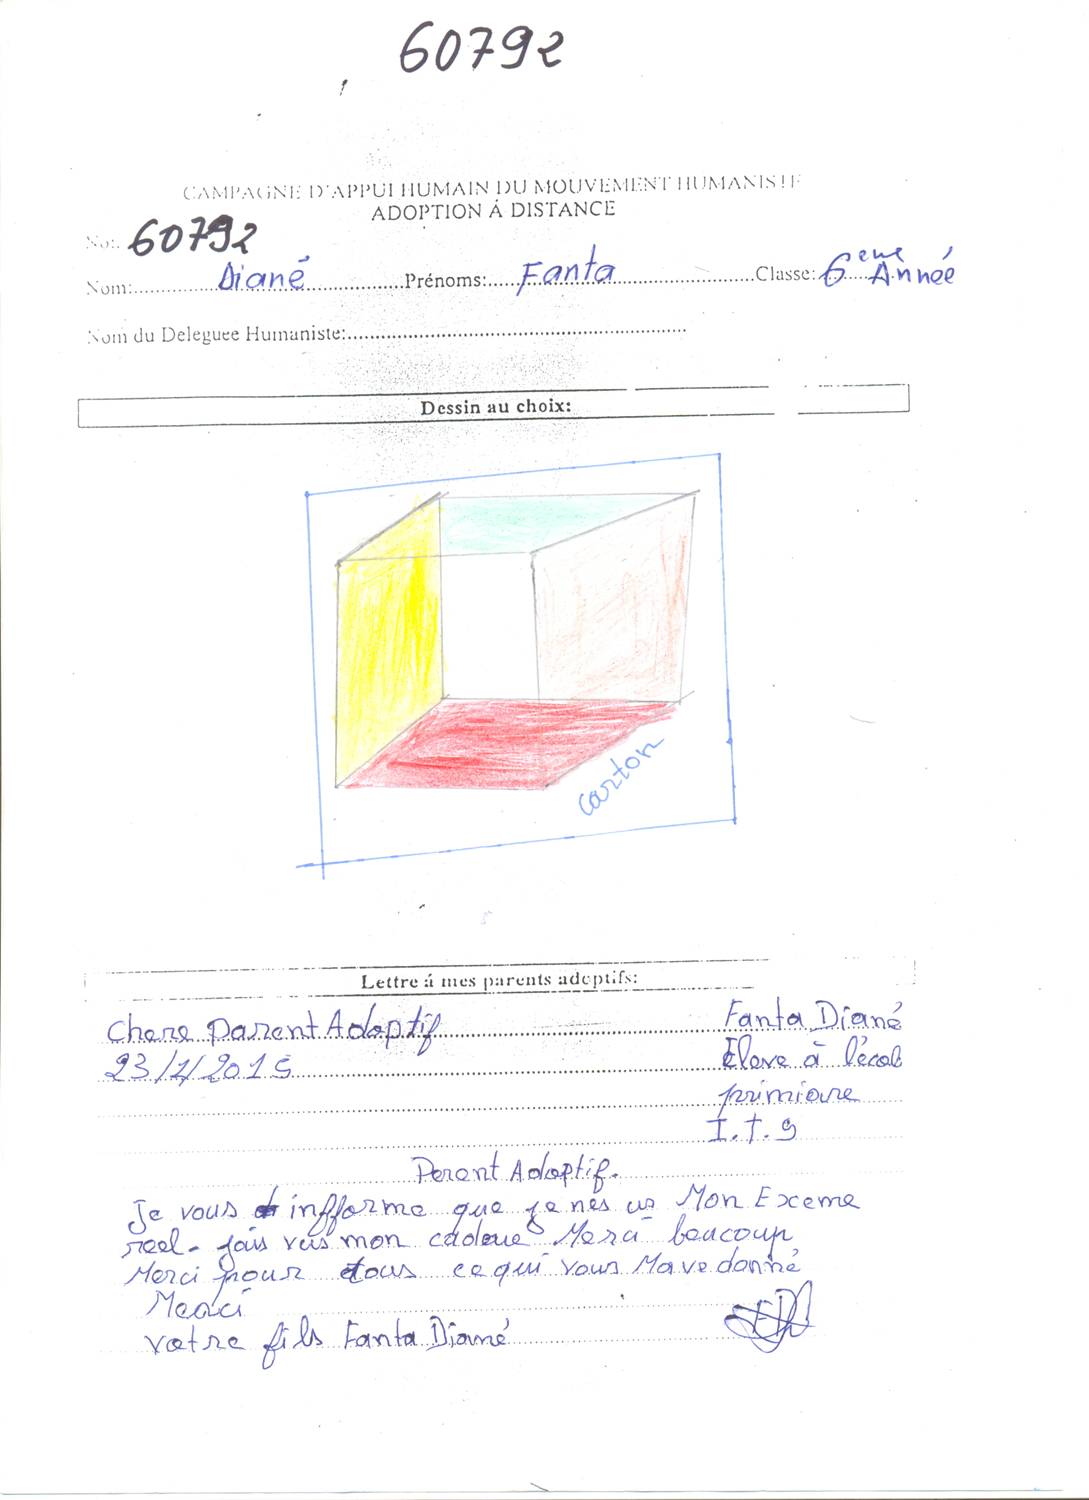 60792
CAMPAGNE D'APPUI HUMAIN DU MOUVEMENT HUMANISTE
ADOPTION Á DISTANCE
No:. 60792
Nom:..............Diané..................Prénoms:.....Fanta............................Classe:6eme Année
Nom du Deleguee Humaniste:..............................................................
Dessin au choix:
carton
Lettre á mes parents adoptifs:
Chere parent Adoptif Fanta Diané
23/1/2015 Elove à l'écol
primiaire
I.T.S
Perent Adoptif.
Je vous infforme que je nes us Mon Exceme
reel. jais rus mon cadoue Mersi beaucoup
Merci pour tous ce qui vous Mave donné
Merci
votre fils Fanta Diané